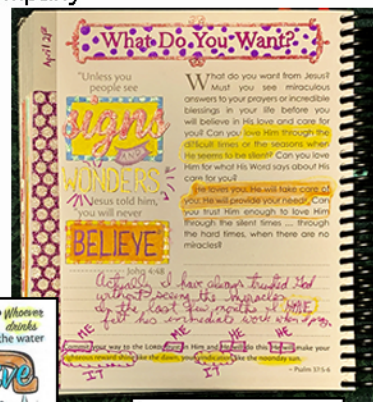 April 21st
What Do You Want?
"Unless you
people see
signs
AND
WONDERS,"
Jesus told him,
"you will never
BELIEVE
John 4:48
What do you want from Jesus?
Must you see miraculous
answers to your prayers or incredible
blessings in your life before you
will believe in His love and care for
you? Can you love Him through the
difficult times or the seasons when
He seems to be silent? Can you love
Him for what His Word says about His
care for you?
He loves you. He will take care of
you. He will provide your needs. Can
you trust Him enough to love Him
through the silent times ... through
the hard times, when there are no
miracles?
Actually I have always trusted God
without seeing the miracles
In the last few months I HAVE
felt his immediate work when I pray.
ME ME HE HE
Commit your way to the LORD; trust in Him and He will do this: He will make your
righteous reward shine like the dawn, your vindication like the noonday sun.
IT IT
– Psalm 37:5-6
Whoever
drinks
the water